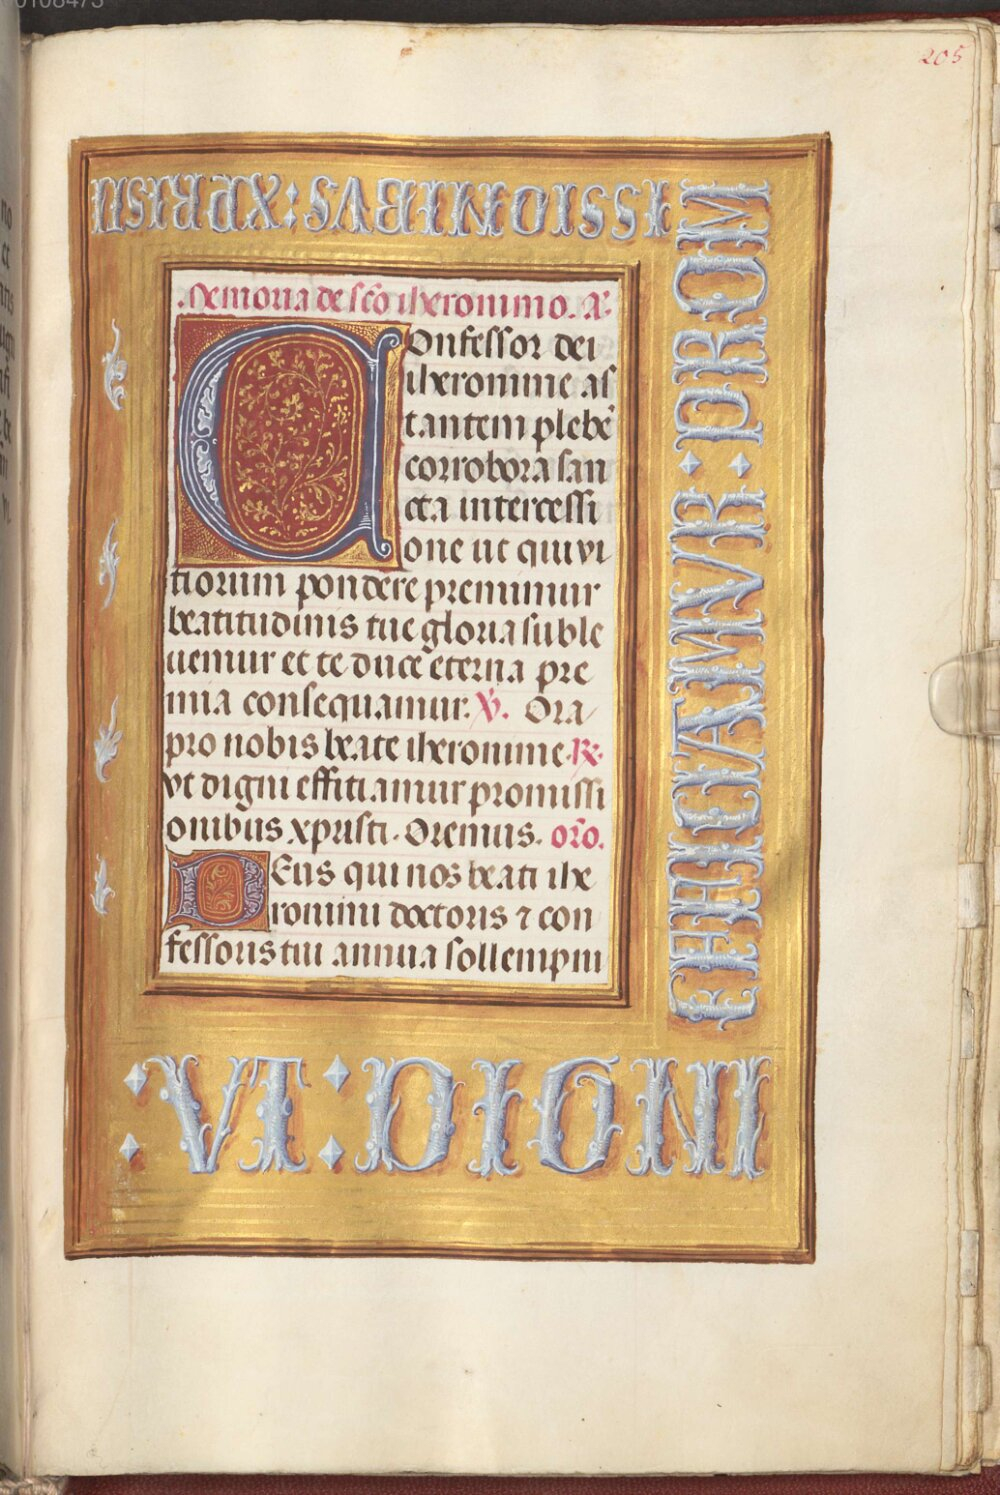 205
Memoria de scõ iheronimo. A᷒.
Confessor dei
iheronime as
tantem plebẽ
corrobora san
cta intercessi
one ut qui vi
tiorum pondere premimur
beatitudinis tue gloria suble
uemur et te duce eterna pre
mia consequamur. V̾. Ora
pro nobis beate iheronime. R̾.
vt digni efficiamur promissi
onibus xpristi. Oremus. orõ.
Deus qui nos beati ihe
ronimi doctoris ⁊ con
fessoris tui annua sollempni
:VT:DIGNI
EFFICIAMVR:PROM
ISSIONIBVS:XPRISTI